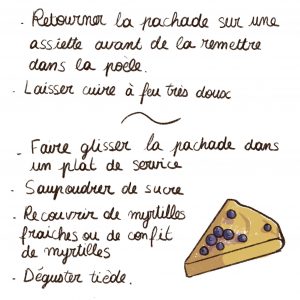 . Retourner la pachade sur une
assiette avant de la remettre
dans la poele.
. Laisser cuire à feu très doux
- Faire glisser la pachade dans
un plat de service
- Saupoudrer de sucre
- Recouvrir de myrtilles
fraiches ou de confit
de myrtilles
- Déguster tiède.